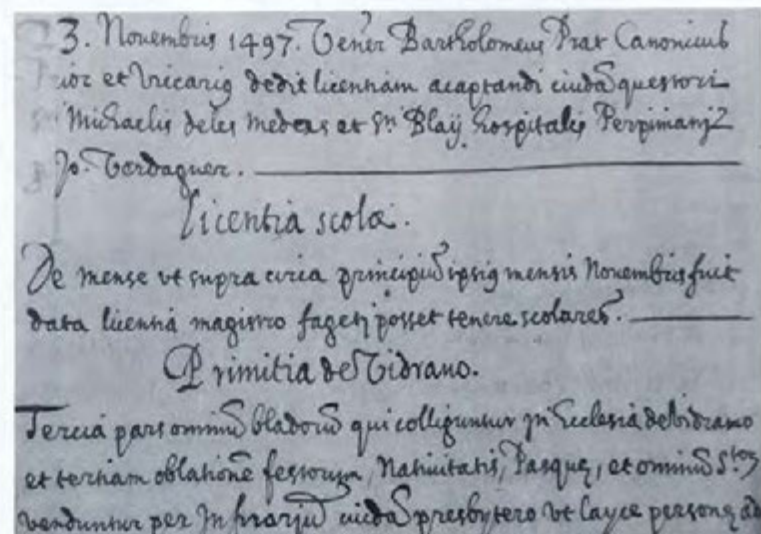 3. Nouembris 1497. Vener Bartholomeus Prat Canonicus
Prior et Vicariꝯ dedit licentiam acaptandi cuidā questori
Michaelis deles Medeas et Sti Blasÿ hospitalis Perpiniani
Jo. Verdaguer.
Licentia scolæ.
De mense vt supra circa principiū ipsiꝯ mensis Nouembris fuit
data licentiā magistro posset tenere scolares.
Primitia de Vidrano.
Tercia pars omniū bladorū qui colliguntur jn Ecclesia de Vidrano
et tertiam oblationē festorum, Natiuitatis, Pasquę, et omniū Stoꝝ
venduntur per cuidā presbytero vt layce personę ad